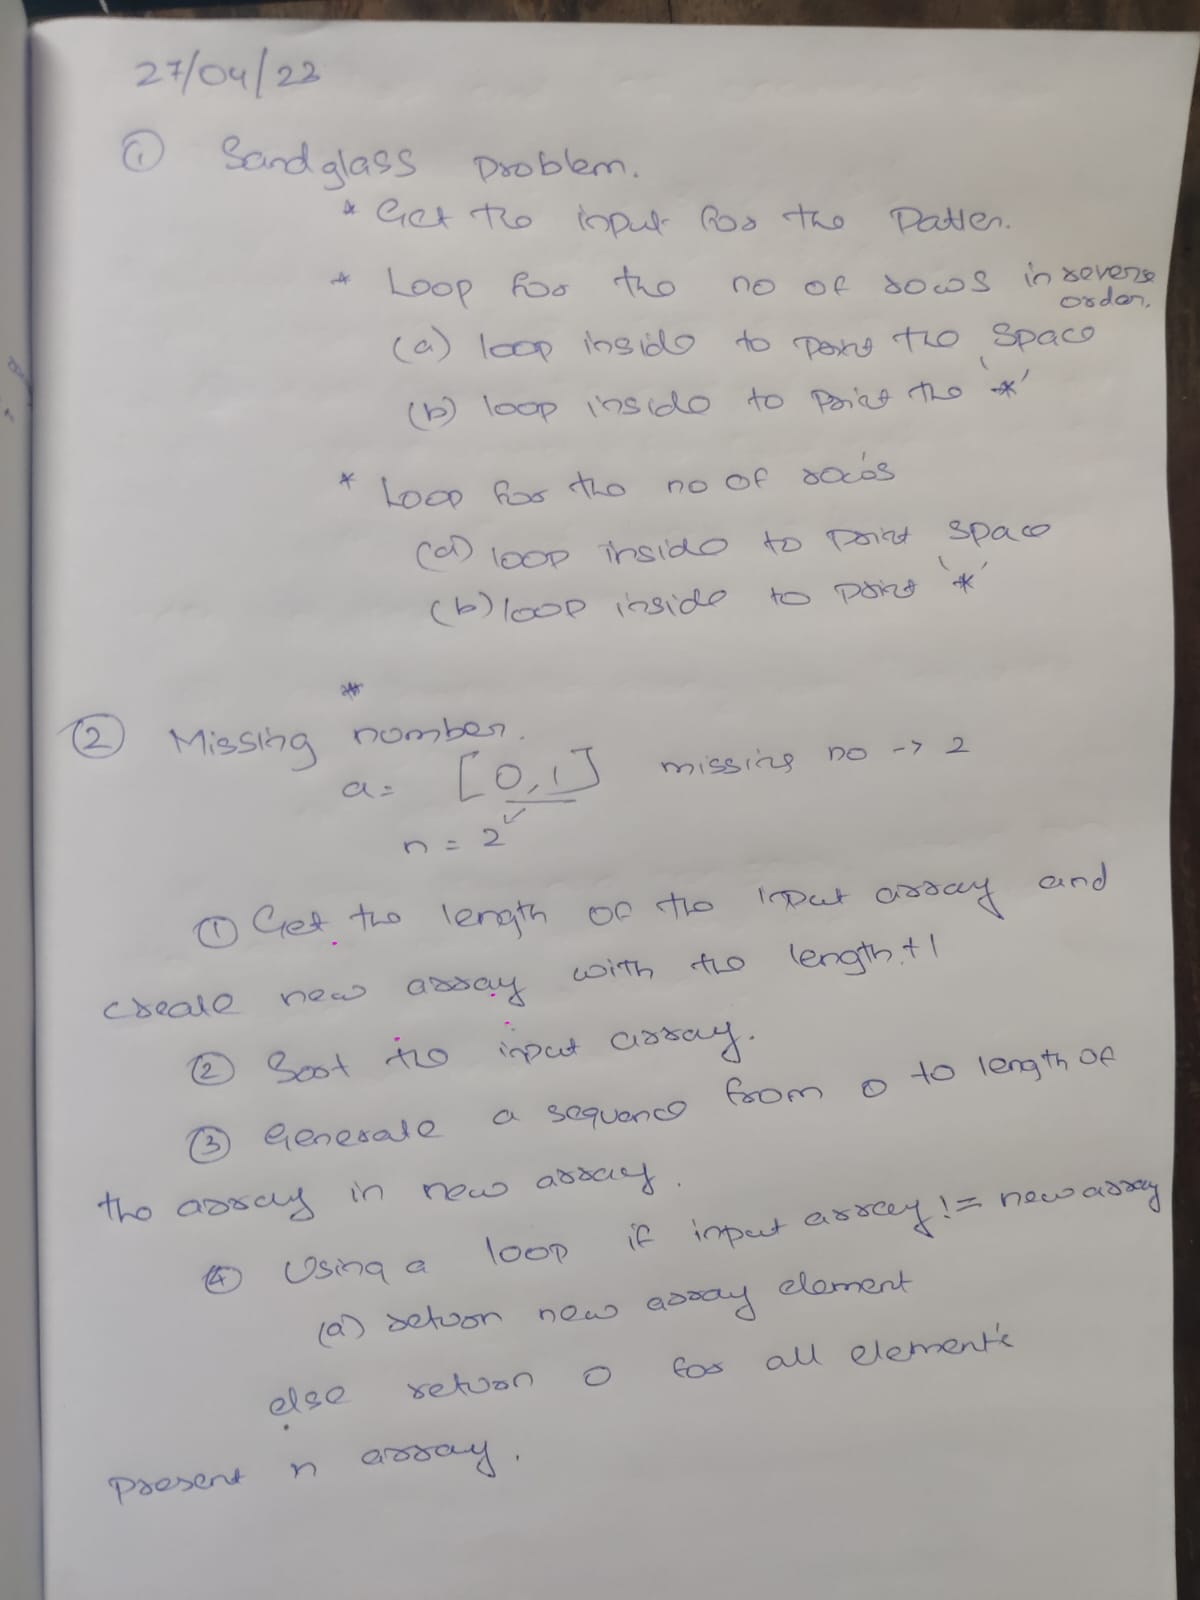 27/04/23
① Sandglass Problem.
* Get the input for the Patten.
* Loop for the no of rows in reverse order.
(a) loop inside to print the space
(b) loop inside to print the '*'
* Loop for the no of rows
(a) loop inside to print space
(b) loop inside to print '*'
② Missing number.
a = [0,1] missing no -> 2
n = 2
① Get the length of the input array and
create new array with the length+1
② Sort the input array.
③ Generate a sequence from 0 to length of
the array in new array.
④ Using a loop if input array != new array
(a) return new array element
else return 0 for all element's
present n array.